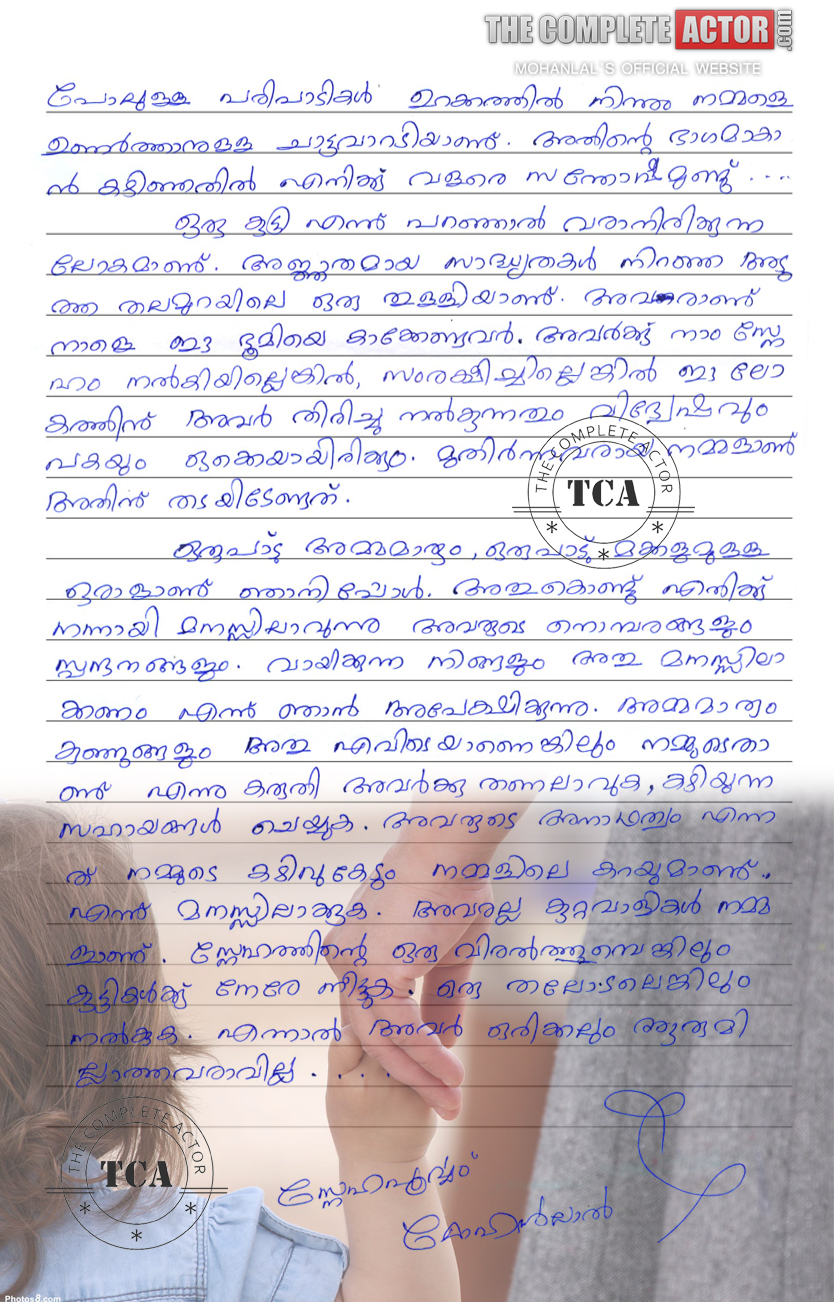 THE COMPLETE ACTOR .com
MOHANLAL'S OFFICIAL WEBSITE
പോലുള്ള പരിപാടികൾ ഉറക്കത്തിൽ നിന്നു നമ്മളെ
ഉണർത്താനുള്ള ചാട്ടവാറടിയാണ്. അതിന്റെ ഭാഗമാകാ
ൻ കഴിഞ്ഞതിൽ എനിക്ക് വളരെ സന്തോഷമുണ്ട്....
ഒരു കുട്ടി എന്ന് പറഞ്ഞാൽ വരാനിരിക്കുന്ന
ലോകമാണ്. അജ്ഞാതമായ സാദ്ധ്യതകൾ നിറഞ്ഞ അടു
ത്ത തലമുറയിലെ ഒരു തുള്ളിയാണ്. അവരാണ്
നാളെ ഈ ഭൂമിയെ കാക്കേണ്ടവർ. അവർക്ക് നാം സ്നേ
ഹം നൽകിയില്ലെങ്കിൽ, സംരക്ഷിച്ചില്ലെങ്കിൽ ഈ ലോ
കത്തിന് അവർ തിരിച്ചു നൽകുന്നതും വിദ്വേഷവും
പകയും ഒക്കെയായിരിക്കും. മുതിർന്നവരായ നമ്മളാണ്
അതിന് തടയിടേണ്ടത്.
ഒരുപാട് അമ്മമാരും, ഒരുപാട് മക്കളുമുള്ള
ഒരാളാണ് ഞാനിപ്പോൾ. അതുകൊണ്ട് എനിക്ക്
നന്നായി മനസ്സിലാവുന്നു അവരുടെ നൊമ്പരങ്ങളും
സ്പന്ദനങ്ങളും. വായിക്കുന്ന നിങ്ങളും അത് മനസ്സിലാ
ക്കണം എന്ന് ഞാൻ അപേക്ഷിക്കുന്നു. അമ്മമാരും
കുഞ്ഞുങ്ങളും അത് എവിടെയാണെങ്കിലും നമ്മുടെതാ
ണ് എന്നു കരുതി അവർക്കു തണലാവുക, കഴിയുന്ന
സഹായങ്ങൾ ചെയ്യുക. അവരുടെ അനാഥത്വം എന്ന
ത് നമ്മുടെ കഴിവുകേടും നമ്മളിലെ കറയുമാണ്..
എന്ന് മനസ്സിലാക്കുക. അവരല്ല കുറ്റവാളികൾ നമ്മ
ളാണ്. സ്നേഹത്തിന്റെ ഒരു വിരൽത്തുമ്പെങ്കിലും
കുട്ടികൾക്ക് നേരേ നീട്ടുക. ഒരു തലോടലെങ്കിലും
നൽകുക. എന്നാൽ അവർ ഒരിക്കലും ആരുമി
ല്ലാത്തവരാവില്ല....
സ്നേഹപൂർവ്വം
മോഹൻലാൽ
THE COMPLETE ACTOR
TCA
THE COMPLETE ACTOR
TCA
Photos8.com